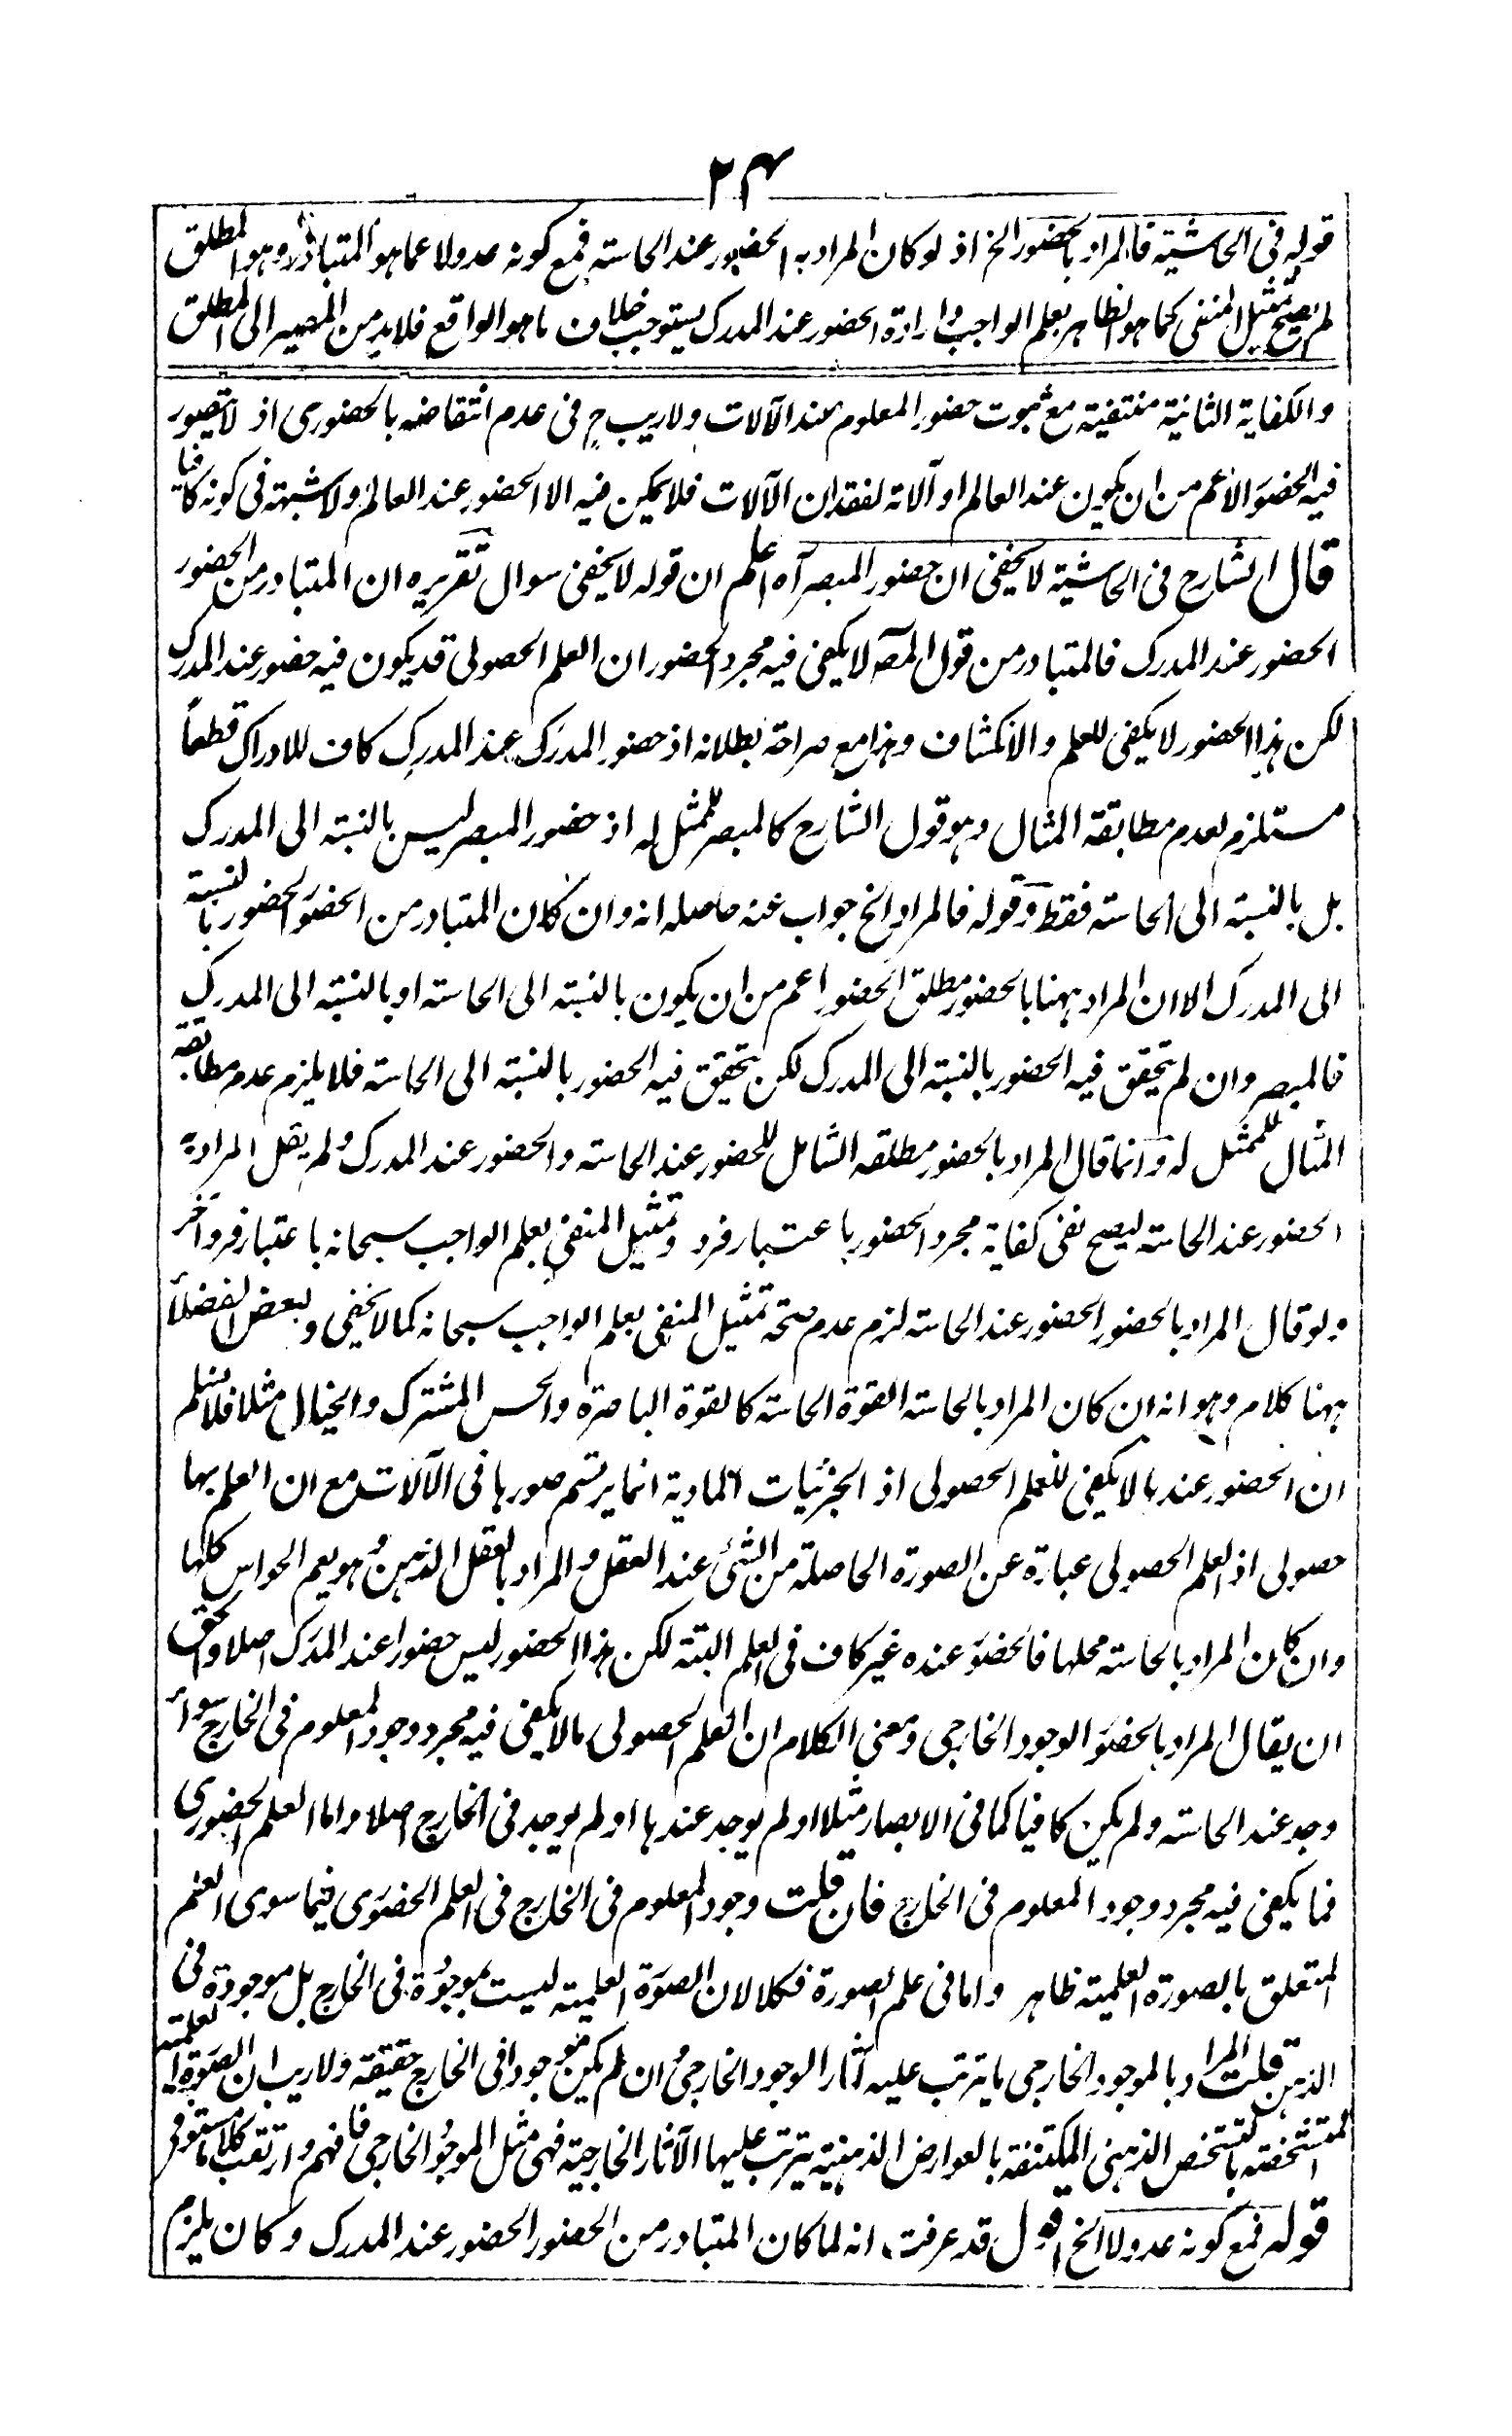 ٢٤
قوله فى الحاشية فالمراد بالحضور الخ اذ لو كان المراد به الحضور عند الحاسة فمع كونه عدولا عما هو المتبادر وهو المطلق
لم يصح تمثيل المنفى كما هو الظاهر بعلم الواجب وارادة الحضور عند المدرك يستوجب خلاف ما هو الواقع فلابد من المصير الى المطلق
والكفاية الثانية منتفية مع ثبوت حضور المعلوم عند الآلات ولا ريب ح فى عدم انتقاضه بالحضورى اذ لا يتصور
فيه الحضور الاعم من ان يكون عند العالم او آلاته لفقدان الآلات فلا يمكن فيه الا الحضور عند العالم ولا شبهة فى كونه كافيا
قال الشارح فى الحاشية لا يخفى ان حضور المبصر آه اعلم ان قوله لا يخفى سوال تقريره ان المتبادر من الحضور
الحضور عند المدرك فالمتبادر من قول المصـ لا يكفى فيه مجرد الحضور ان العلم الحصولى قد يكون فيه حضور عند المدرك
لكن هذا الحضور لا يكفى للعلم والانكشاف وهذا مع صراحة بطلانه اذ حضور المدرَك عند المدرِك كاف للادراك قطعاً
مستلزم لعدم مطابقة المثال وهو قول الشارح كالمبصر للممثل له اذ حضور المبصر ليس بالنسبة الى المدرك
بل بالنسبة الى الحاسة فقط وقوله فالمراد الخ جواب عنه حاصله انه وان كان المتبادر من الحضور الحضور بالنسبة
الى المدرك الا ان المراد ههنا بالحضور مطلق الحضور اعم من ان يكون بالنسبة الى الحاسة او بالنسبة الى المدرك
فالمبصر وان لم يتحقق فيه الحضور بالنسبة الى المدرك لكن يتحقق فيه الحضور بالنسبة الى الحاسة فلا يلزم عدم مطابقة
المثال للممثل له وانما قال المراد بالحضور مطلقه الشامل للحضور عند الحاسة والحضور عند المدرك ولم يقل المراد به
الحضور عند الحاسة ليصح نفى كفاية مجرد الحضور باعتبار فرد وتمثيل المنفى بعلم الواجب سبحانه باعتبار فرد آخر
ولو قال المراد بالحضور الحضور عند الحاسة لزم عدم صحة تمثيل المنفى بعلم الواجب سبحانه كما لا يخفى ولبعض الفضلاء
ههنا كلام وهو انه ان كان المراد بالحاسة القوة الحاسة كالقوة الباصرة والحس المشترك والخيال مثلا فلا نسلم
ان الحضور عندها لا يكفى للعلم الحصولى اذ الجزئيات المادية انما يرتسم صورها فى الآلات مع ان العلم بها
حصولى اذ العلم الحصولى عبارة عن الصورة الحاصلة من الشئ عند العقل والمراد بالعقل الذهن وهو يعم الحواس كلها
وان كان المراد بالحاسة محلها فالحضور عنده غير كاف فى العلم البتة لكن هذا الحضور ليس حضورا عند المدرك اصلا والحق
ان يقال المراد بالحضور الوجود الخارجى ومعنى الكلام ان العلم الحصولى ما لا يكفى فيه مجرد وجود المعلوم فى الخارج سواء
وجد عند الحاسة ولم يكن كافيا كما فى الابصار مثلا او لم يوجد عندها او لم يوجد فى الخارج اصلا واما العلم الحضورى
فما يكفى فيه مجرد وجود المعلوم فى الخارج فان قلت وجود المعلوم فى الخارج فى العلم الحضورى فيما سوى العلم
المتعلق بالصورة العلمية ظاهر واما فى علم الصورة فكلا لان الصورة العلمية ليست بموجودة فى الخارج بل موجودة فى
الذهن قلت المراد بالموجود الخارجى ما يترتب عليه آثار الوجود الخارجى وان لم يكن موجودا فى الخارج حقيقة ولا ريب ان الصورة العلمية
المتشخصة بالتشخص الذهنى المكتنفة بالعوارض الذهنية يترتب عليها الآثار الخارجية فهى مثل الموجود الخارجى فافهم وارتقب كلاما مستوفى
قوله فمع كونه عدولا الخ اقول قد عرفت انه لما كان المتبادر من الحضور الحضور عند المدرك وكان يلزم